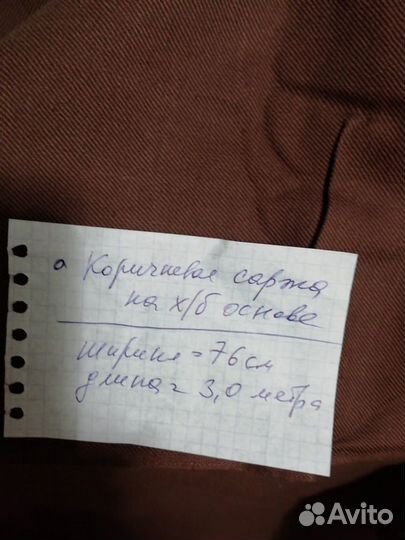 Коричневая саржа
на х/б основе
ширина = 76 см
длина = 3,0 метра
Avito